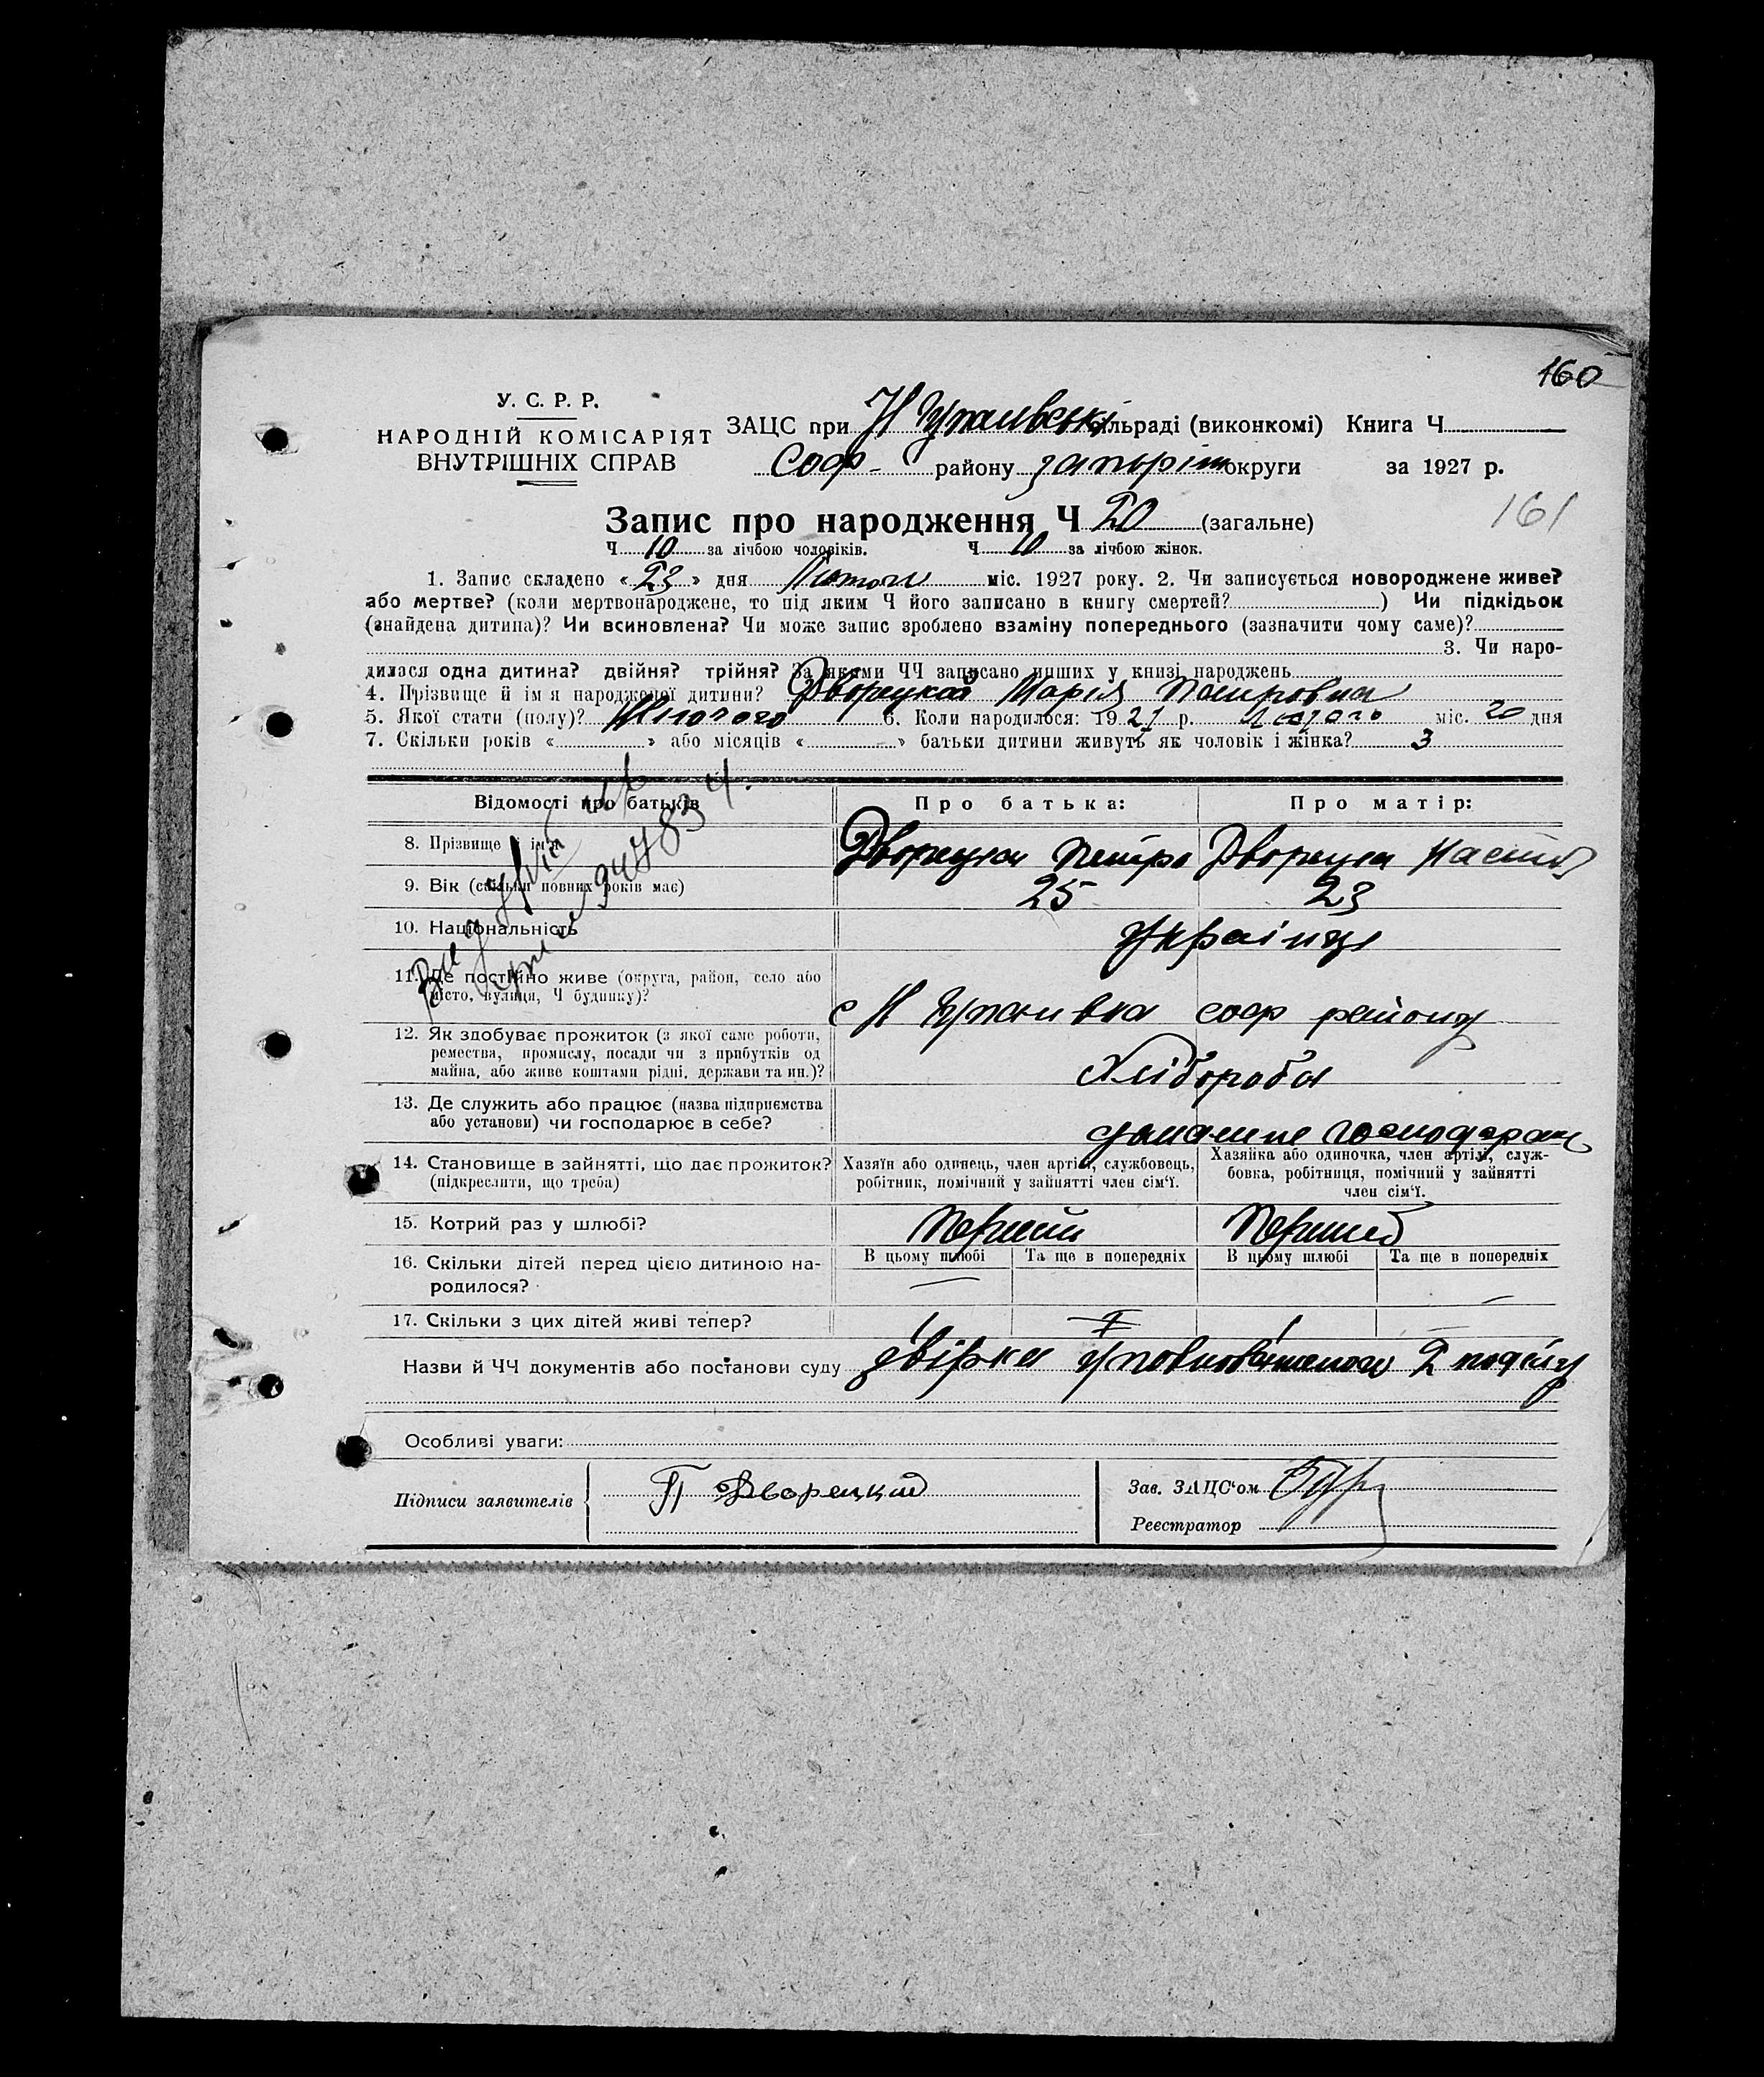 160
У. С. Р. Р.
НАРОДНІЙ КОМІСАРІЯТ
ВНУТРІШНІХ СПРАВ
ЗАЦС при Н сільраді (виконкомі) Книга Ч
Соф району запоріж округи за 1927 р.
161
Запис про народження Ч 20 (загальне)
Ч 10 за лічбою чоловіків. Ч 10 за лічбою жінок.
1. Запис складено « 23 » дня Лютого міс. 1927 року. 2. Чи записується новороджене живе?
або мертве? (коли мертвонароджене, то під яким Ч його записано в книгу смертей? ) Чи підкідьок
(знайдена дитина)? Чи всиновлена? Чи може запис зроблено взаміну попереднього (зазначити чому саме)?
3. Чи наро-
дилася одна дитина? двійня? трійня? За якими ЧЧ записано инших у книзі народжень
4. Прізвище й ім'я народженої дитини? Дворецкая Марія Петровна
5. Якої стати (полу)? Жіночого 6. Коли народилося: 1927 р. Лютого міс. 20 дня
7. Скільки років « » або місяців « » батьки дитини живуть як чоловік і жінка? 3
Відомості про батьків
Про батька:
Про матір:
8. Прізвище і ім'я Дворецки Петро Дворецка Настя
9. Вік (скільки повних років має) 25 23
10. Національність Українці
11. Де постійно живе (округа, район, село або
місто, вулиця, Ч будинку)? с Н соф району
12. Як здобуває прожиток (з якої саме роботи,
ремества, промислу, посади чи з прибутків од
майна, або живе коштами рідні, держави та ин.)? Хлібороба
13. Де служить або працює (назва підприємства
або установи) чи господарює в себе?
14. Становище в зайнятті, що дає прожиток?
(підкреслити, що треба)
Хазяїн або одинець, член артілі, службовець,
робітник, помічний у зайнятті член сім'ї.
Хазяйка або одиночка, член артілі, служ-
бовка, робітниця, помічний у зайнятті
член сім'ї.
15. Котрий раз у шлюбі? Перший Перший
16. Скільки дітей перед цією дитиною на-
родилося?
В цьому шлюбі Та ще в попередніх В цьому шлюбі Та ще в попередніх
17. Скільки з цих дітей живі тепер?
Назви й ЧЧ документів або постанови суду
Особливі уваги:
Підписи заявителів П Дворецкий
Зав. ЗАЦС'ом
Реєстратор